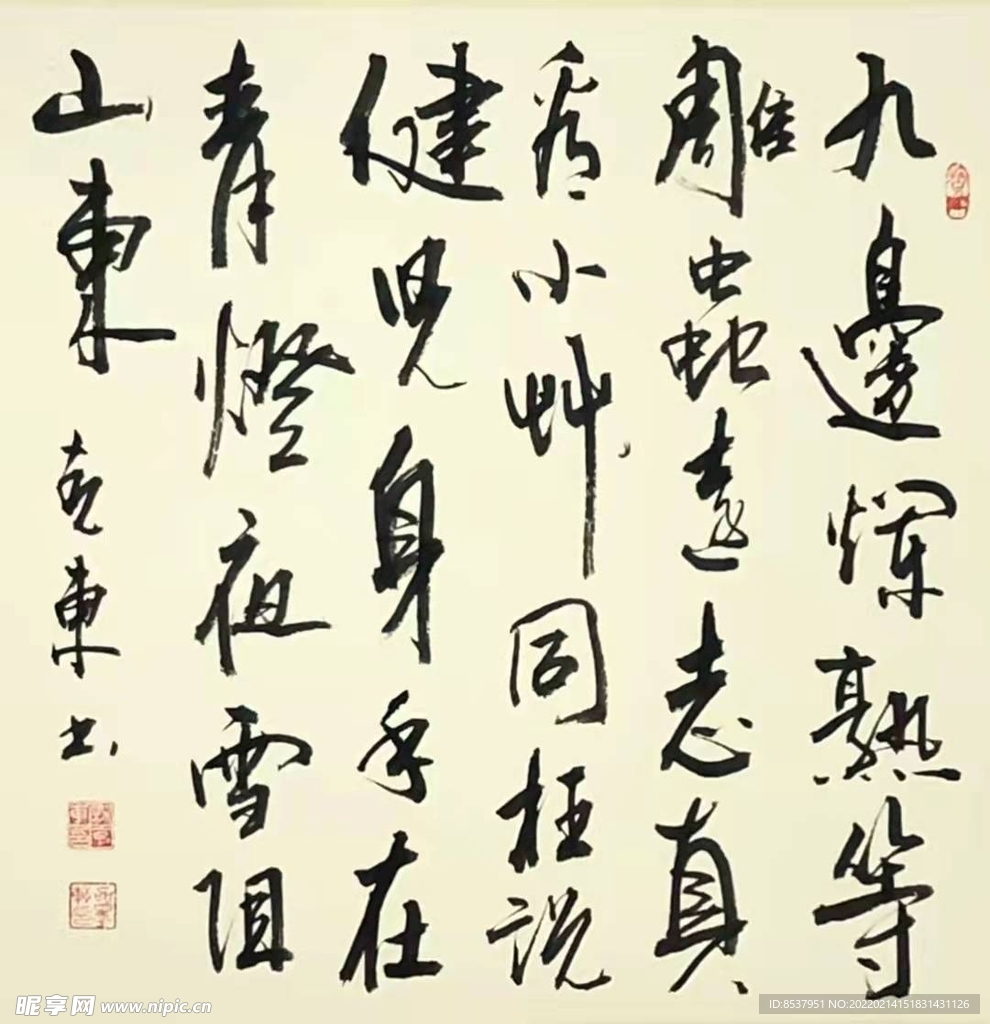 九邊爛熟等
雕蟲遠志真
看小艸同枉説
健兒身手在
青燈夜雪阻
山東 克東書
昵享网 www.nipic.cn
ID:8537951 NO:20220214151831431126